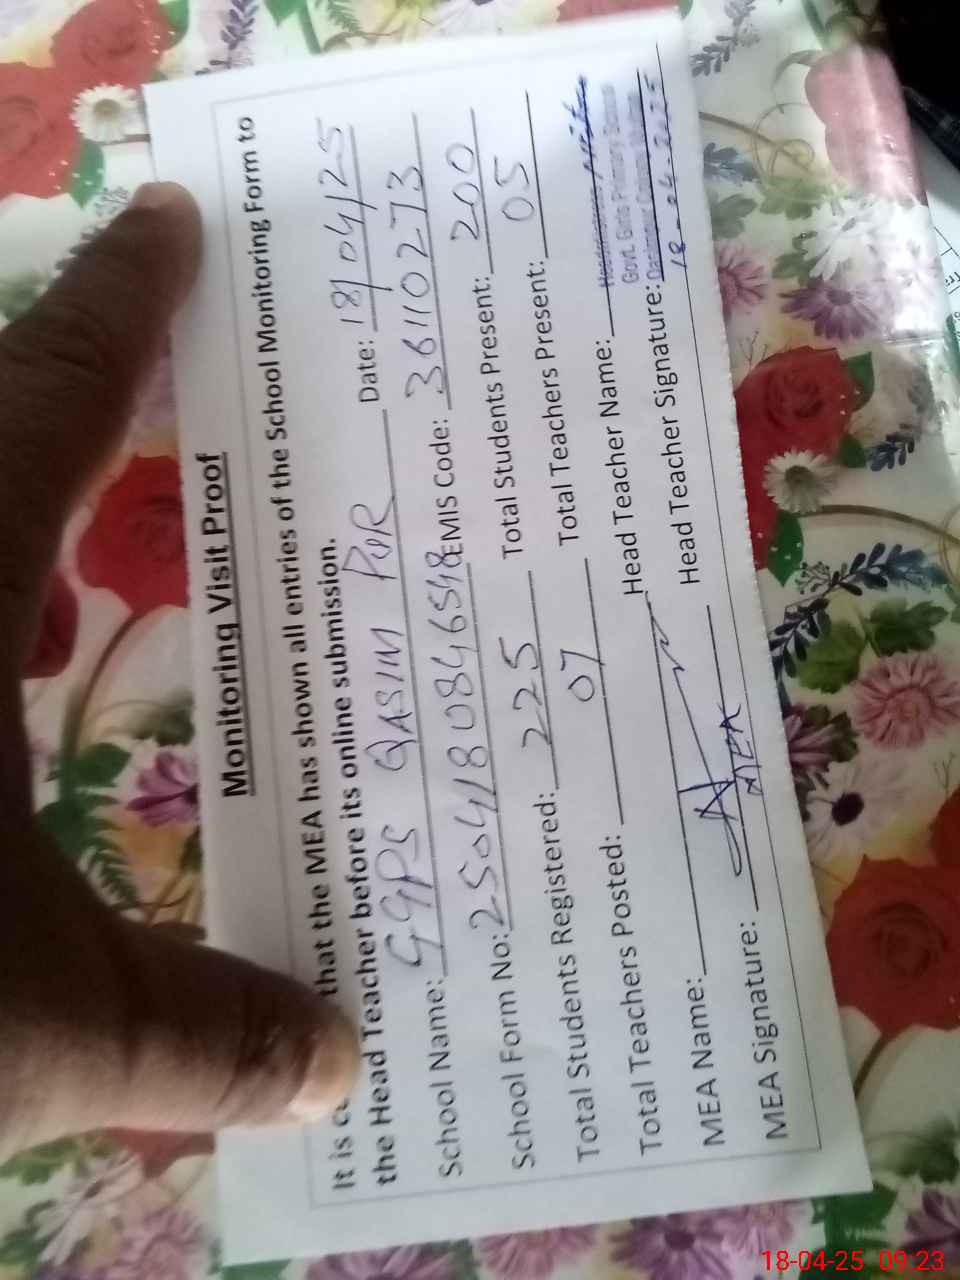 Monitoring Visit Proof
It is that the MEA has shown all entries of the School Monitoring Form to
the Head Teacher before its online submission.
School Name: GGPS QASIM PUR Date: 18/04/25
School Form No: 250418084654 EMIS Code: 36110273
Total Students Registered: 225 Total Students Present: 200
Total Teachers Posted: 07 Total Teachers Present: 05
MEA Name: Head Teacher Name:
Govt. Girls Primary
MEA Signature: MEA Head Teacher Signature:
18-04-2025
18-04-25 09:23